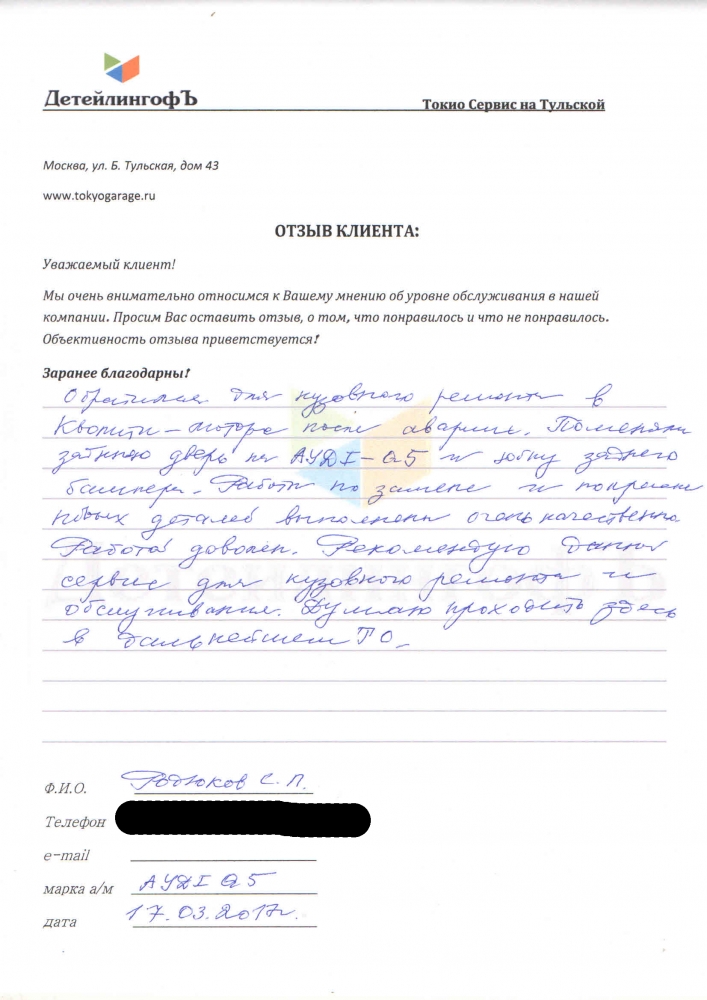 ДетейлингофЪ
Токио Сервис на Тульской
Москва, ул. Б. Тульская, дом 43
www.tokyogarage.ru
ОТЗЫВ КЛИЕНТА:
Уважаемый клиент!
Мы очень внимательно относимся к Вашему мнению об уровне обслуживания в нашей
компании. Просим Вас оставить отзыв, о том, что понравилось и что не понравилось.
Объективность отзыва приветствуется!
Заранее благодарны!
Обратился для кузовного ремонта в
Кволити-моторс после аварии. Поменяли
заднюю дверь на АУДI-Q5 и юбку заднего
бампера. Работы по замене и покраске
новых деталей выполнены очень качественно
Работой доволен. Рекомендую данный
сервис для кузовного ремонта и
обслуживания. Думаю проходить здесь
в дальнейшем ТО
Ф.И.О. Родюков С.П.
Телефон
e-mail
марка а/м АУДI Q5
дата 17.03.2017г.